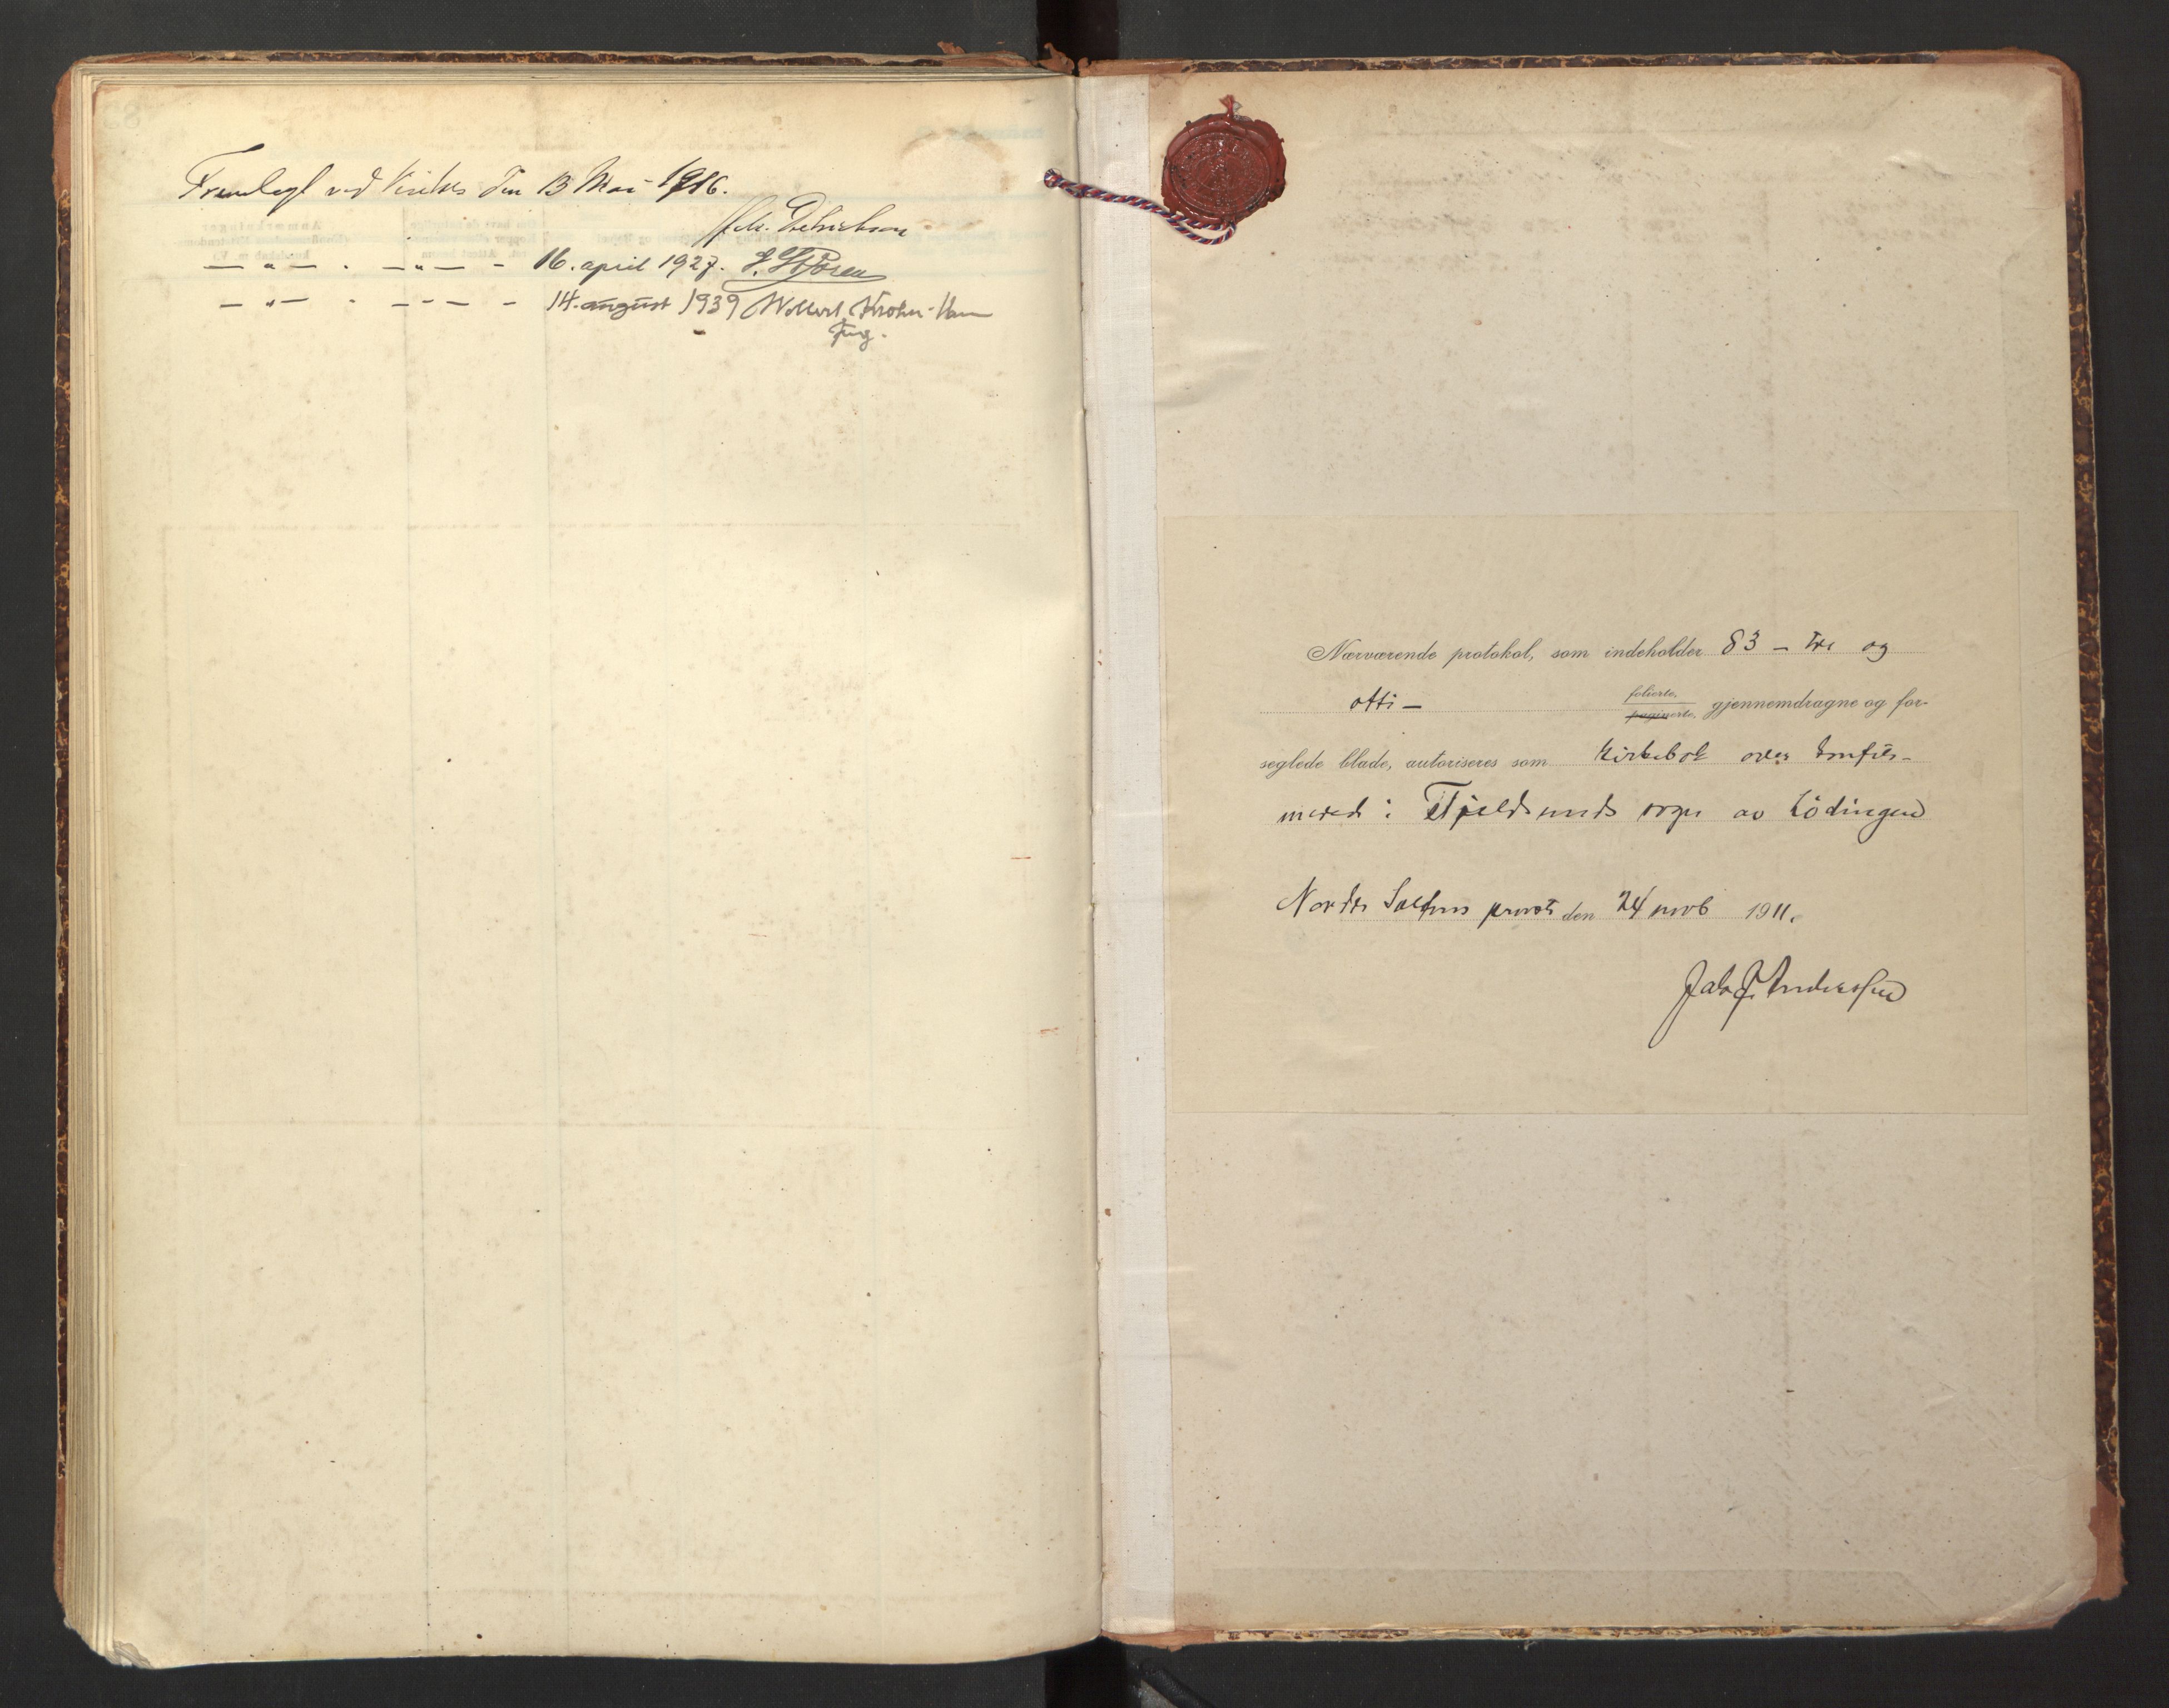 Fremlagt ved Visitas den 13 Mai 1916.
M. Dietrichson
— " — . — " — - 16. april 1927. E. Støren
— " — . — " — - 14. august 1939 Wollert Krohn-Han
Fung.
Nærværende protokol, som indeholder 83 – tre og
otti –
folierte,
paginerte, gjennemdragne og for-
seglede blade, autoriseres som Kirkebok over konfir-
merede i Tjeldsunds sogn av Lödingen
Nordre Saltens prosti den 24 novb 1911.
Jak. J. Anderssen